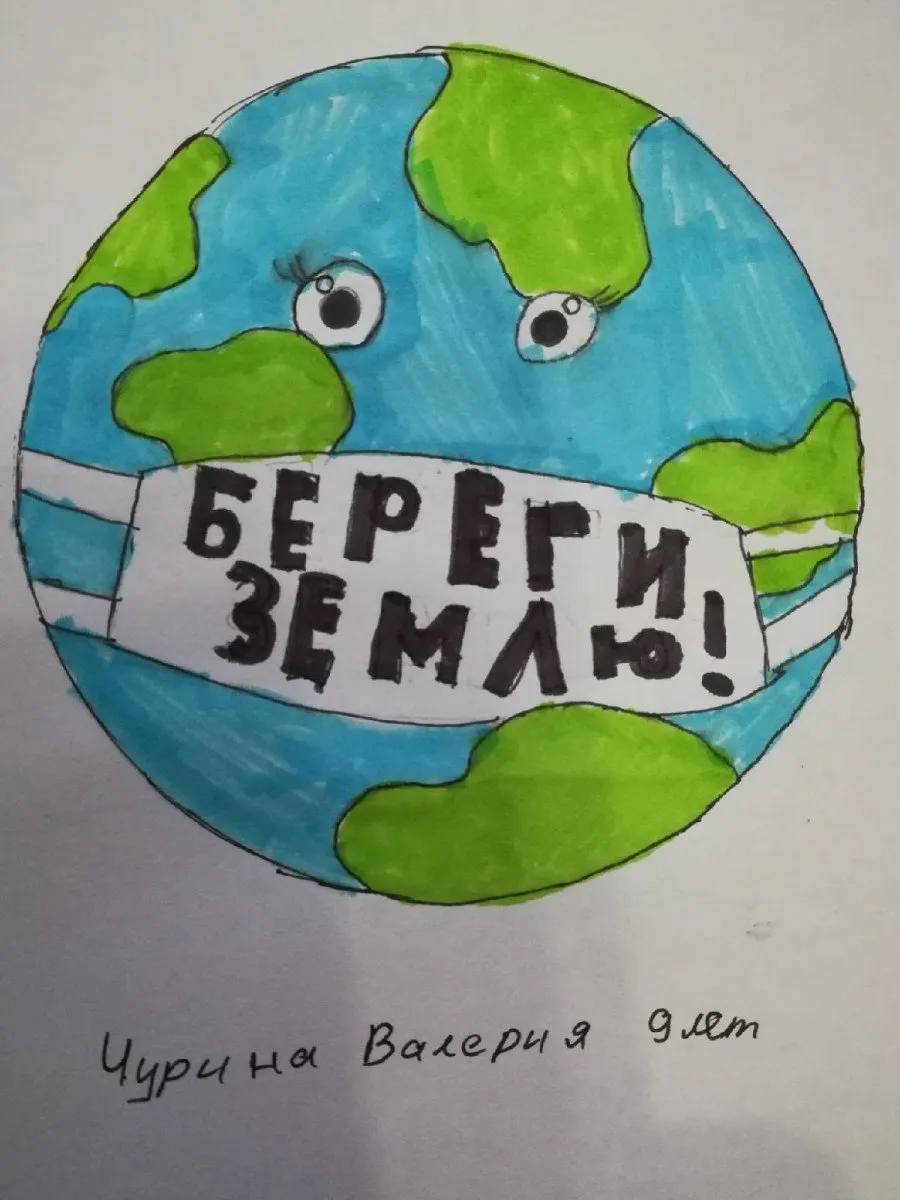 БЕРЕГИ
ЗЕМЛЮ!
Чурина Валерия 9 лет